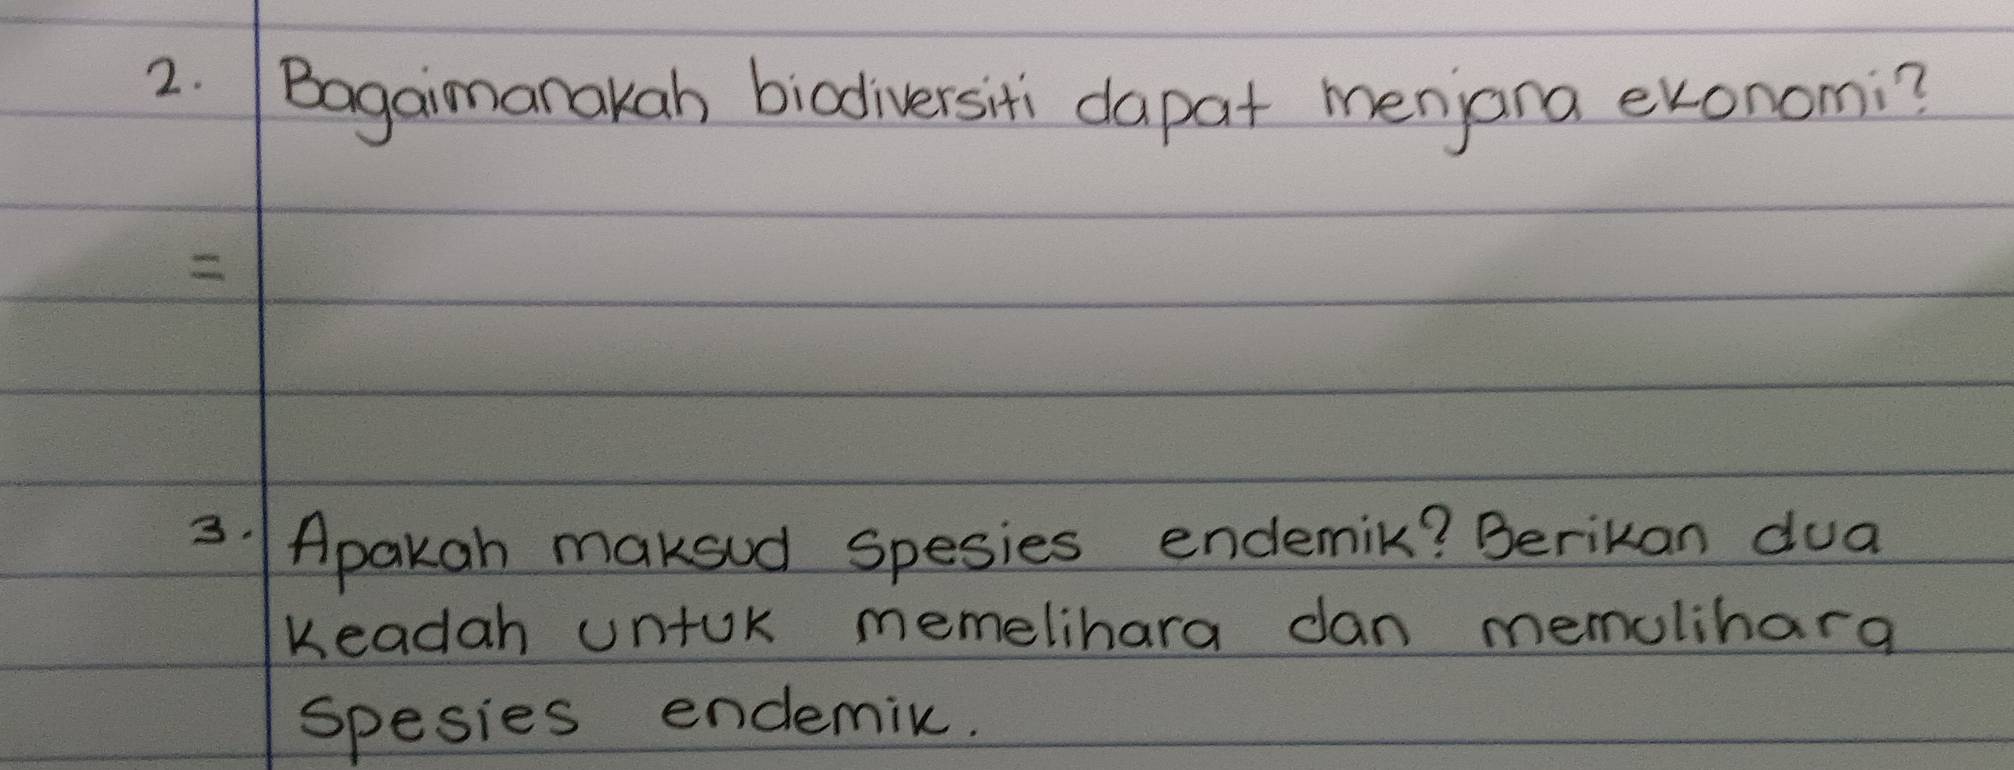 2. Bagaimanakah biodiversiti dapat menjana ekonomi?
=
3. Apakah maksud spesies endemik? Berikan dua
keadah untuk memelihara dan memulihara
spesies endemik.